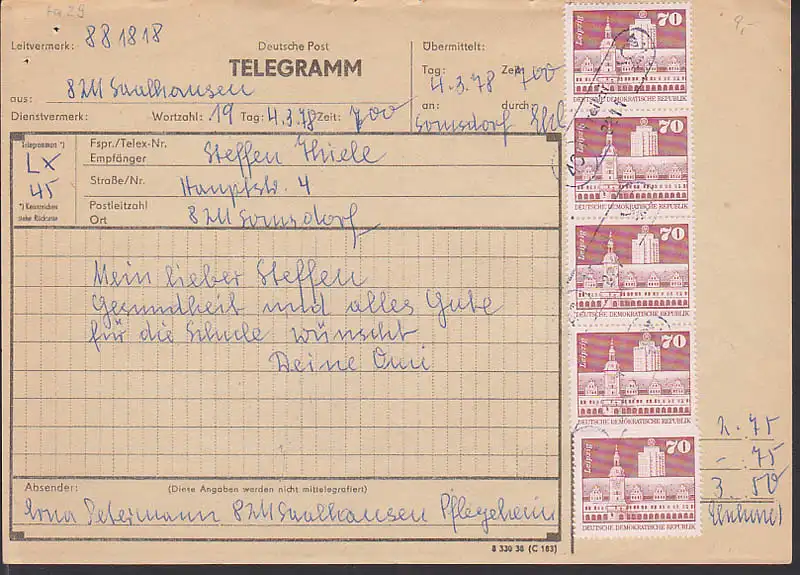 tq 29
9,-
Leitvermerk: 881818
Deutsche Post
TELEGRAMM
Übermittelt:
Tag: Zeit:
4.3.78 700
aus: 8211 Saalhausen
an: durch:
Somsdorf
Dienstvermerk: Wortzahl: 19 Tag: 4.3.78 Zeit: 700
Telegrammart *)
LX
45
*) Kennzeichen
siehe Rückseite
Fspr./Telex-Nr.
Empfänger
Steffen Thiele
Straße/Nr.
Hauptstr. 4
Postleitzahl
Ort
8211 Somsdorf
Mein lieber Steffen
Gesundheit und alles Gute
für die Schule wünscht
Deine Omi
Absender:
(Diese Angaben werden nicht mittelegrafiert)
Erna Petermann 8211 Saalhausen Pflegeheim
8 330 38 (C 163)
Leipzig
70
DEUTSCHE DEMOKRATISCHE REPUBLIK
Leipzig
70
DEUTSCHE DEMOKRATISCHE REPUBLIK
Leipzig
70
DEUTSCHE DEMOKRATISCHE REPUBLIK
Leipzig
70
DEUTSCHE DEMOKRATISCHE REPUBLIK
Leipzig
70
DEUTSCHE DEMOKRATISCHE REPUBLIK
2.75
-75
3.50